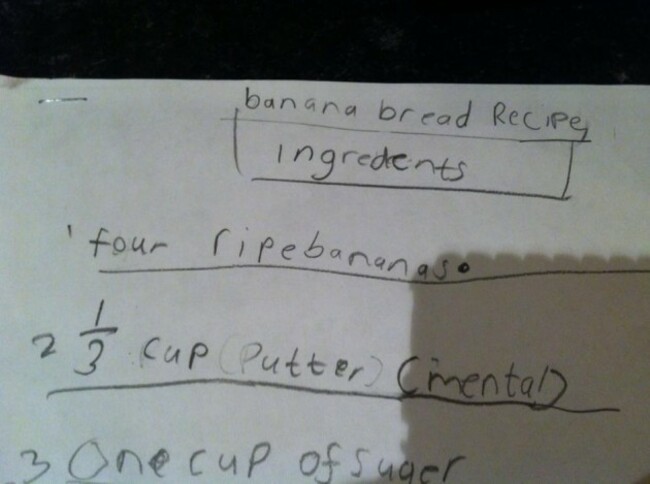 banana bread Recipe
ingredents
1 four ripe bananas.
2 1/3 cup (Putter) (mental)
3 One cup of suger